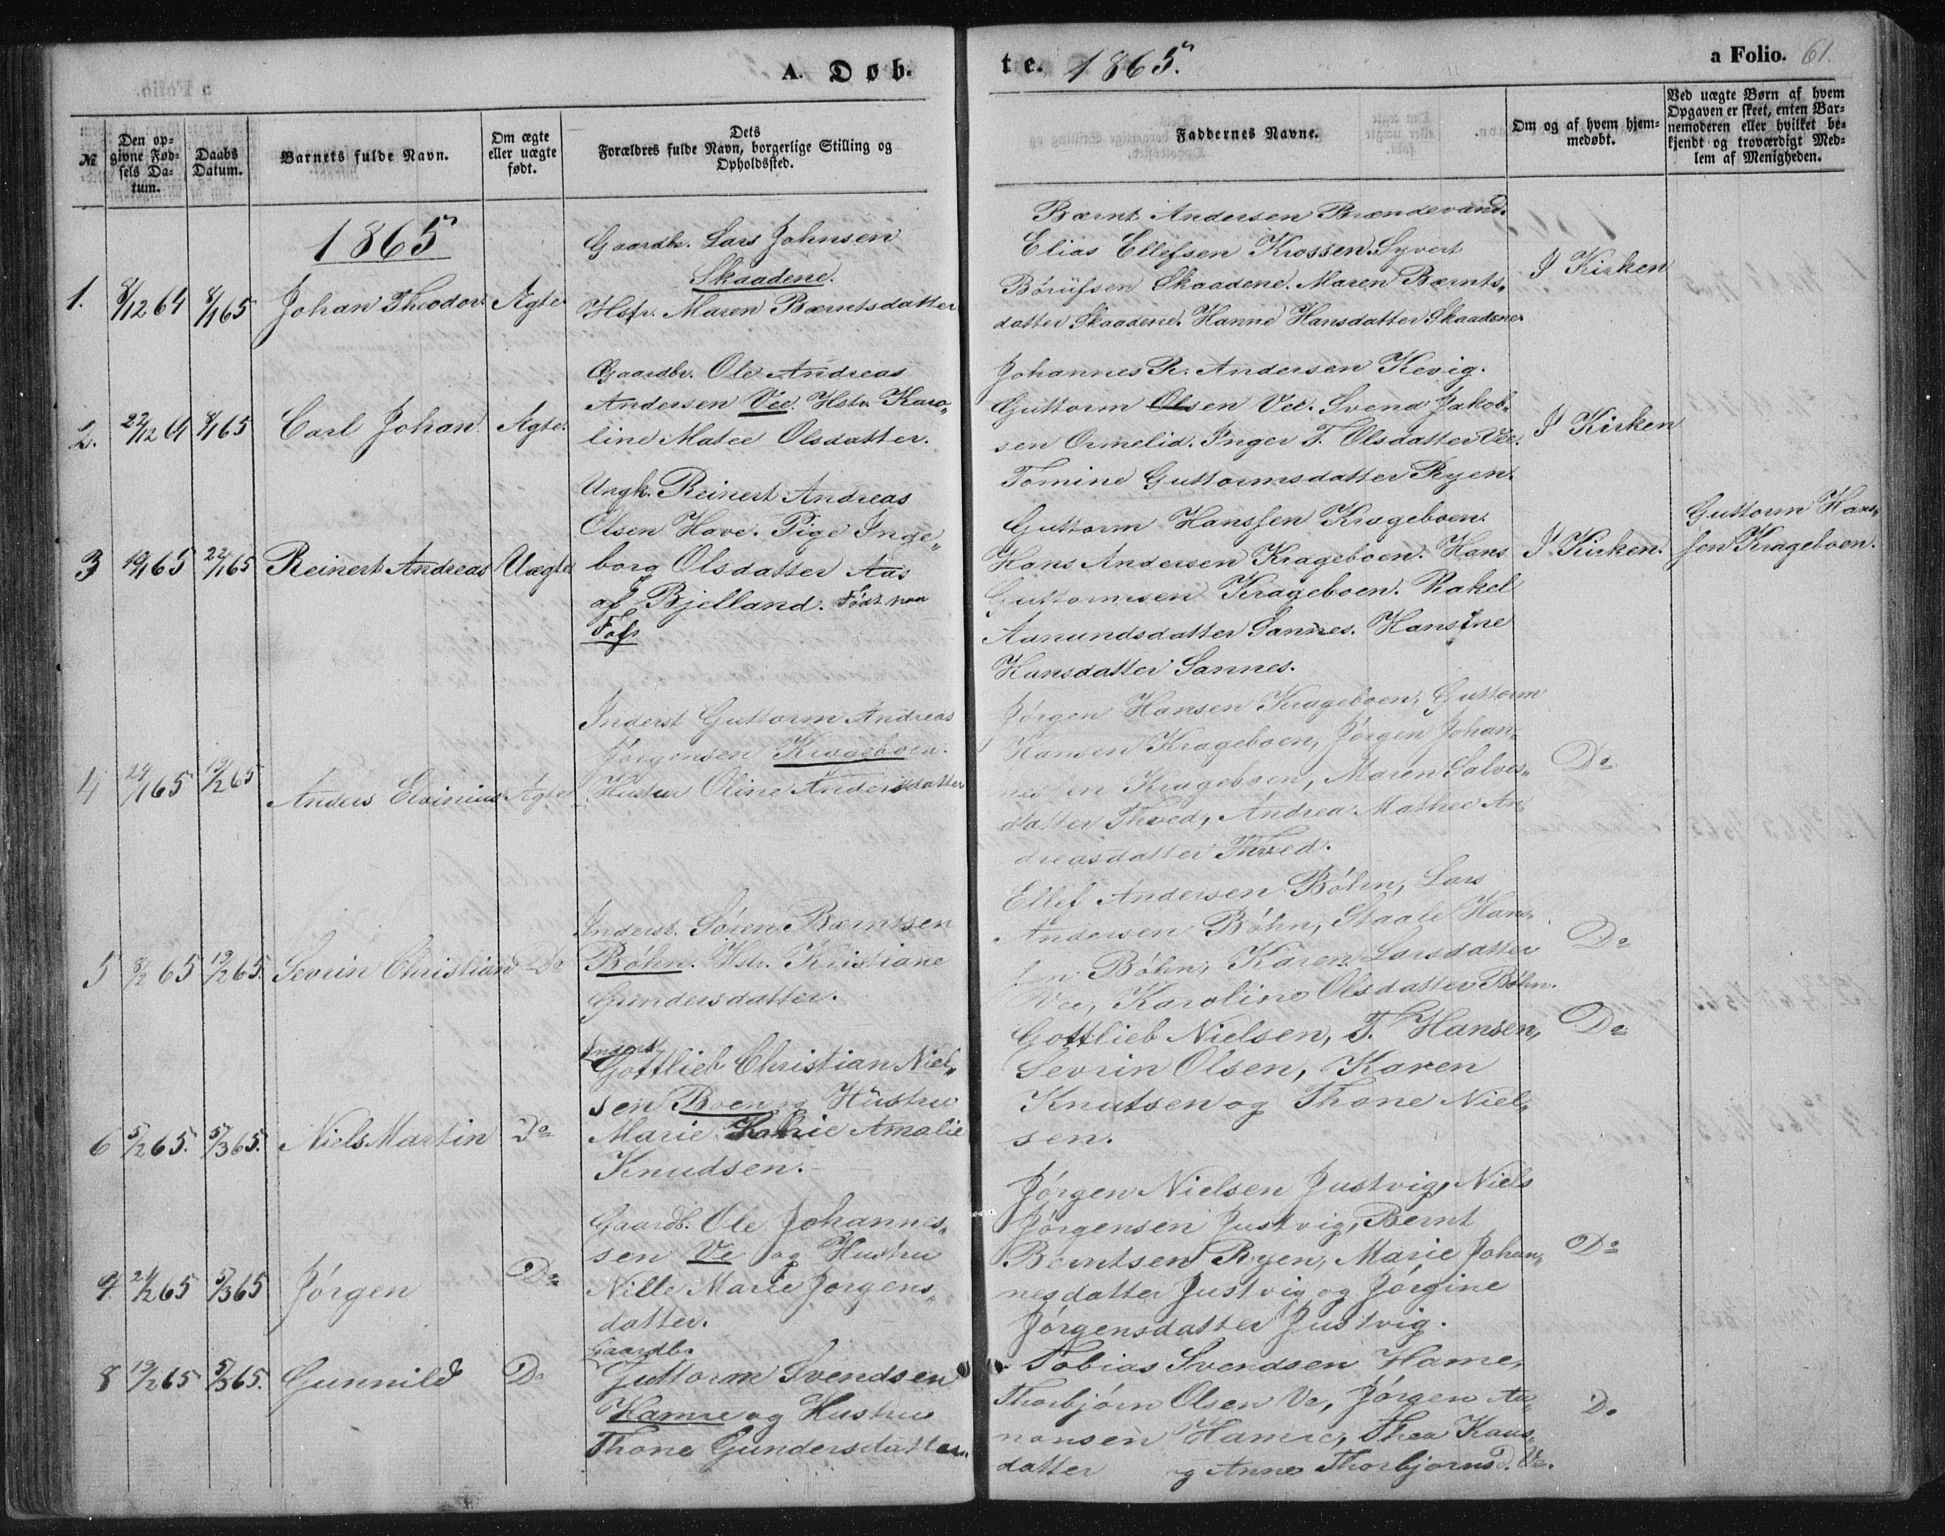 A. Døb-
te. 1865.
a Folio. 61.
№
Den op-
givne Fød-
sels Da-
tum.
Daabs
Datum.
Barnets fulde Navn.
Om ægte
eller uægte
født.
Dets
Forældres fulde Navn, borgerlige Stilling og
Opholdssted.
Faddernes Navne.
Om og af hvem hjem-
medøbt.
Ved uægte Børn af hvem
Opgaven er skeet, enten Bar-
nemoderen eller hvilket be-
kjendt og troværdigt Med-
lem af Menigheden.
1865
1. 8/12 64 8/1 65 Johan Theodor. Ægte
Gaardbr. Lars Johnsen
Skaadene.
Hstr. Maren Bærntsdatter
Bærnt Andersen Brændevand.
Elias Ellefsen Krossen. Syvert
Børüfsen Skaadene. Maren Bærnts-
datter Skaadene. Hanne Hansdatter Skaadene
I Kirken
2. 22/12 64 8/1 65 Carl Johan. Ægte.
Gaardbr. Ole Andreas
Andersen Vee. Hstr Karo-
line Matee Olsdatter.
Johannes Andersen Kevig.
Guttorm Olsen Vee. Svend Jakob-
sen Ormelid. Inger T. Olsdatter Vee.
Tomine Guttormsdatter Ryen.
I Kirken
3 10/1 65 22/1 65 Reinert Andreas Uægte
Ungk. Reinert Andreas
Olsen Have. Pige Inge-
borg Olsdatter Aas
af Bjelland. Født paa
Foss
Guttorm Hanssen Krageboen.
Hans Andersen Krageboen. Hans
Guttormsen Krageboen. Rakel
Aanundsdatter Sannes. Hansine
Hansdatter Sannes.
I Kirken.
Guttorm Hans-
sen Krageboen.
4 24/1 65 19/2 65 Anders Elvinius Ægte
Inderst Guttorm Andreas
Jørgensen Krageboen.
Hustru Oline Andersdatter
Jørgen Hansen Krageboen, Guttorm
Hansen Krageboen, Jørgen Johan-
nessen Krageboen, Maren Salves-
datter Thved, Andrea Mathee An-
dreasdatter Thved.
Do
5 8/2 65 19/2 65. Sevrin Christian Do
Inderst. Søren Bærntsen
Bøhn. Hstr. Kristiane
Gundersdatter.
Ellef Andersen Bøhn, Lars
Andersen Bøhn, Staale Han-
sen Bøhn, Karen Larsdatter
Vee, Karoline Olsdatter Bøhn.
Do
6 5/2 65. 5/3 65. Niels Martin Do
Inderst
Gottlieb Christian Niel-
sen Boen og Hustru
Marie Amalie
Knudsen.
Gottlieb Nielsen, T. Hansen,
Sevrin Olsen, Karen
Knutsen og Thone Niel-
sen.
Do
7. 24/2 65 5/3 65 Jørgen Do
Gaardb. Ole Johannes-
sen Ve og Hustru
Nille Marie Jørgens-
datter.
Jørgen Nielsen Justvig, Niels
Jørgensen Justvig, Bernt
Berntsen Ryen, Marie Johan-
nesdatter Justvig og Jørgine
Jørgensdatter Justvig.
Do
8 19/2 65 5/3 65. Gunnild Do
Gaardb.
Guttorm Svendsen
Hamre og Hustru
Thone Gundersdatter.
Tobias Svendsen Hamre,
Thorbjørn Olsen Ve, Jørgen Aa-
nonsen Hamre, Thea Knus-
datter og Anne Thorbjørnsd. Ve.
Do